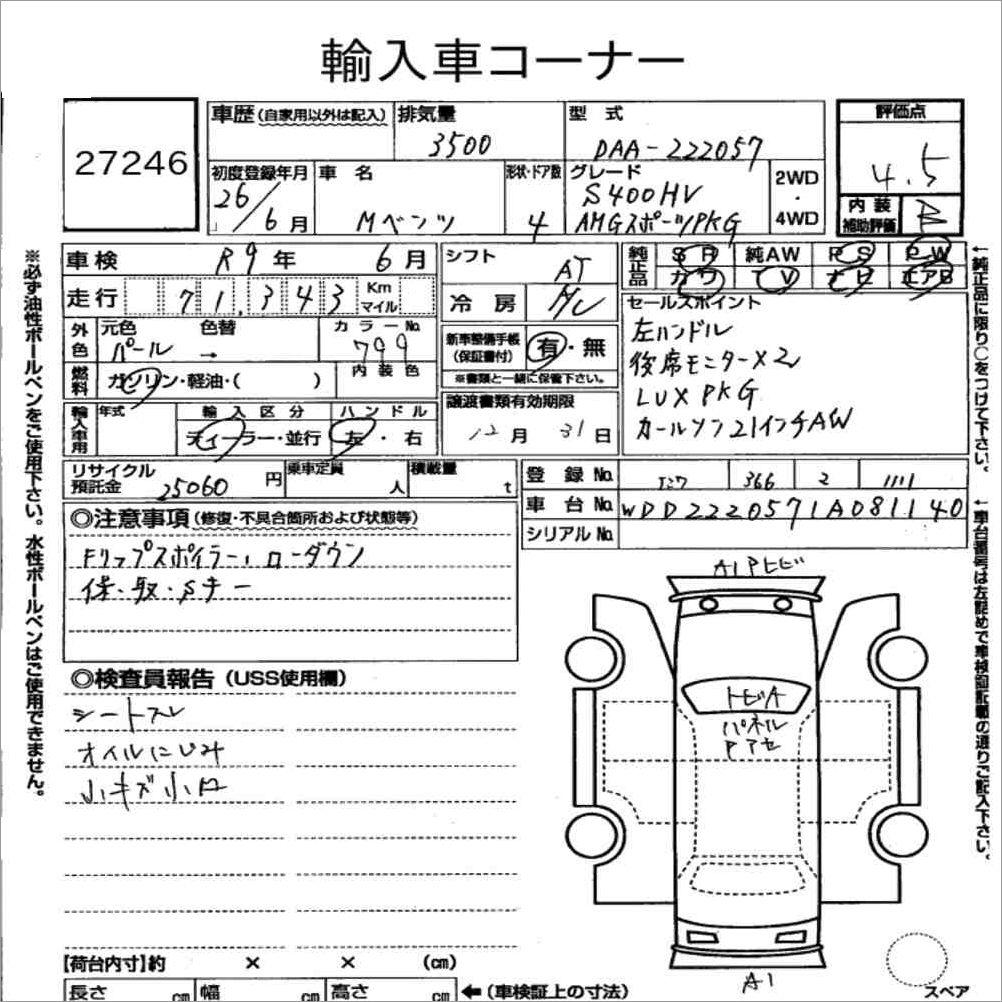 輸入車コーナー
27246
車歴(自家用以外は記入)
排気量
3500
型式
DAA-222057
評価点
4.5
初度登録年月
26/6月
車名
Mベンツ
形状・ドア数
4
グレード
S400HV
AMGスポーツPKG
2WD
・
4WD
内装
補助評価
B
車検
R9年 6月
シフト
AT
純正品
SR 純AW PS PW
カワ TV ナビ エアB
走行
71,343
Km
マイル
冷房
セールスポイント
左ハンドル
後席モニター×2
LUX PKG
カールソン21インチAW
外色
元色
パール
色替
→
カラーNo.
799
内装色
新車整備手帳
(保証書付)
有・無
※書類と一緒に保管下さい。
燃料
ガソリン・軽油・( )
輸入車用
年式
輸入区分
ディーラー・並行
ハンドル
左・右
譲渡書類有効期限
12月 31日
リサイクル
預託金
25060円
乗車定員
人
積載量
t
登録No.
366 2 1111
車台No.
WDD2220571A081140
シリアルNo.
◎注意事項(修復・不具合箇所および状態等)
Fリップスポイラー、ローダウン
保・取・Sキー
◎検査員報告(USS使用欄)
シートスレ
オイルにじみ
小キズ小凹
A1Pヒビ
トビA
パネル
Pアセ
A1
スペア
【荷台内寸】約 × × (cm)
長さ cm 幅 cm 高さ cm
←(車検証上の寸法)
※必ず油性ボールペンをご使用下さい。水性ボールペンはご使用できません。
←純正品に限り○をつけて下さい。
←車台番号は左詰めで車検証記載の通りご記入下さい。